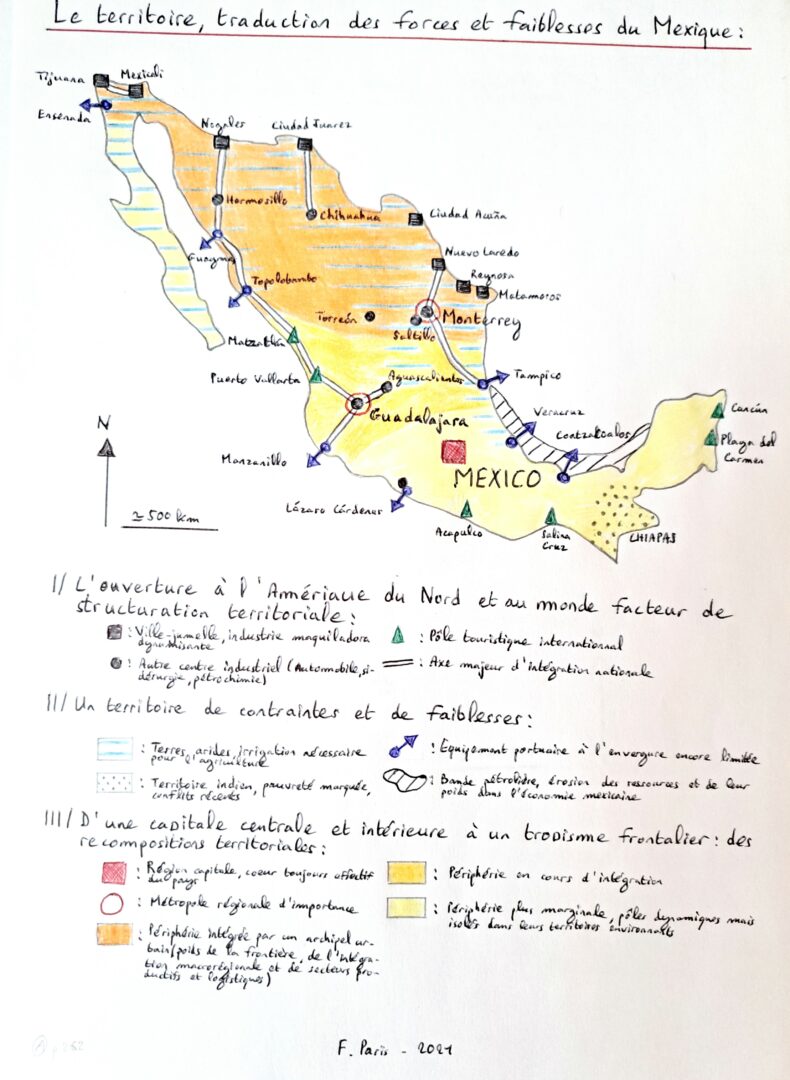 Le territoire, traduction des forces et faiblesses du Mexique :
Tijuana
Mexicali
Ensenada
Nogales
Ciudad Juarez
Hermosillo
Chihuahua
Ciudad Acuña
Guaymas
Nuevo Laredo
Reynosa
Matamoros
Topolobambo
Torreón
Monterrey
Saltillo
Matzatlán
Puerto Vallarta
Aguascalientes
Tampico
Guadalajara
Veracruz
Coatzalcoalos
Cancún
Playa del
Carmen
N
Manzanillo
MEXICO
≃ 500 km
Lázaro Cárdenas
Acapulco
Salina
Cruz
CHIAPAS
I/ L'ouverture à l'Amérique du Nord et au monde facteur de
structuration territoriale :
: Ville-jumelle, industrie maquiladora
dynamisante
: Pôle touristique internationnal
: Autre centre industriel (Automobile, si-
dérurgie, pétrochimie)
: Axe majeur d'intégration nationale
II/ Un territoire de contraintes et de faiblesses :
: Terres arides, irrigation nécessaire
pour l'agriculture
: Equipement portuaire à l'envergure encore limitée
: Territoire indien, pauvreté marquée,
conflits récents
: Bande pétrolière, érosion des ressources et de leur
poids dans l'économie mexicaine
III/ D'une capitale centrale et intérieure à un tropisme frontalier : des
recompositions territoriales :
: Région capitale, coeur toujours effectif
du pays
: Périphérie en cours d'intégration
: Métropole régionale d'importance
: Périphérie plus marginale, pôles dynamiques mais
isolés dans leurs territoires environnants
: Périphérie intégrée par un archipel ur-
bain (poids de la frontière, de l'intégra-
tion macrorégionale et de secteurs pro-
ductifs et logistiques)
F. Paris - 2021